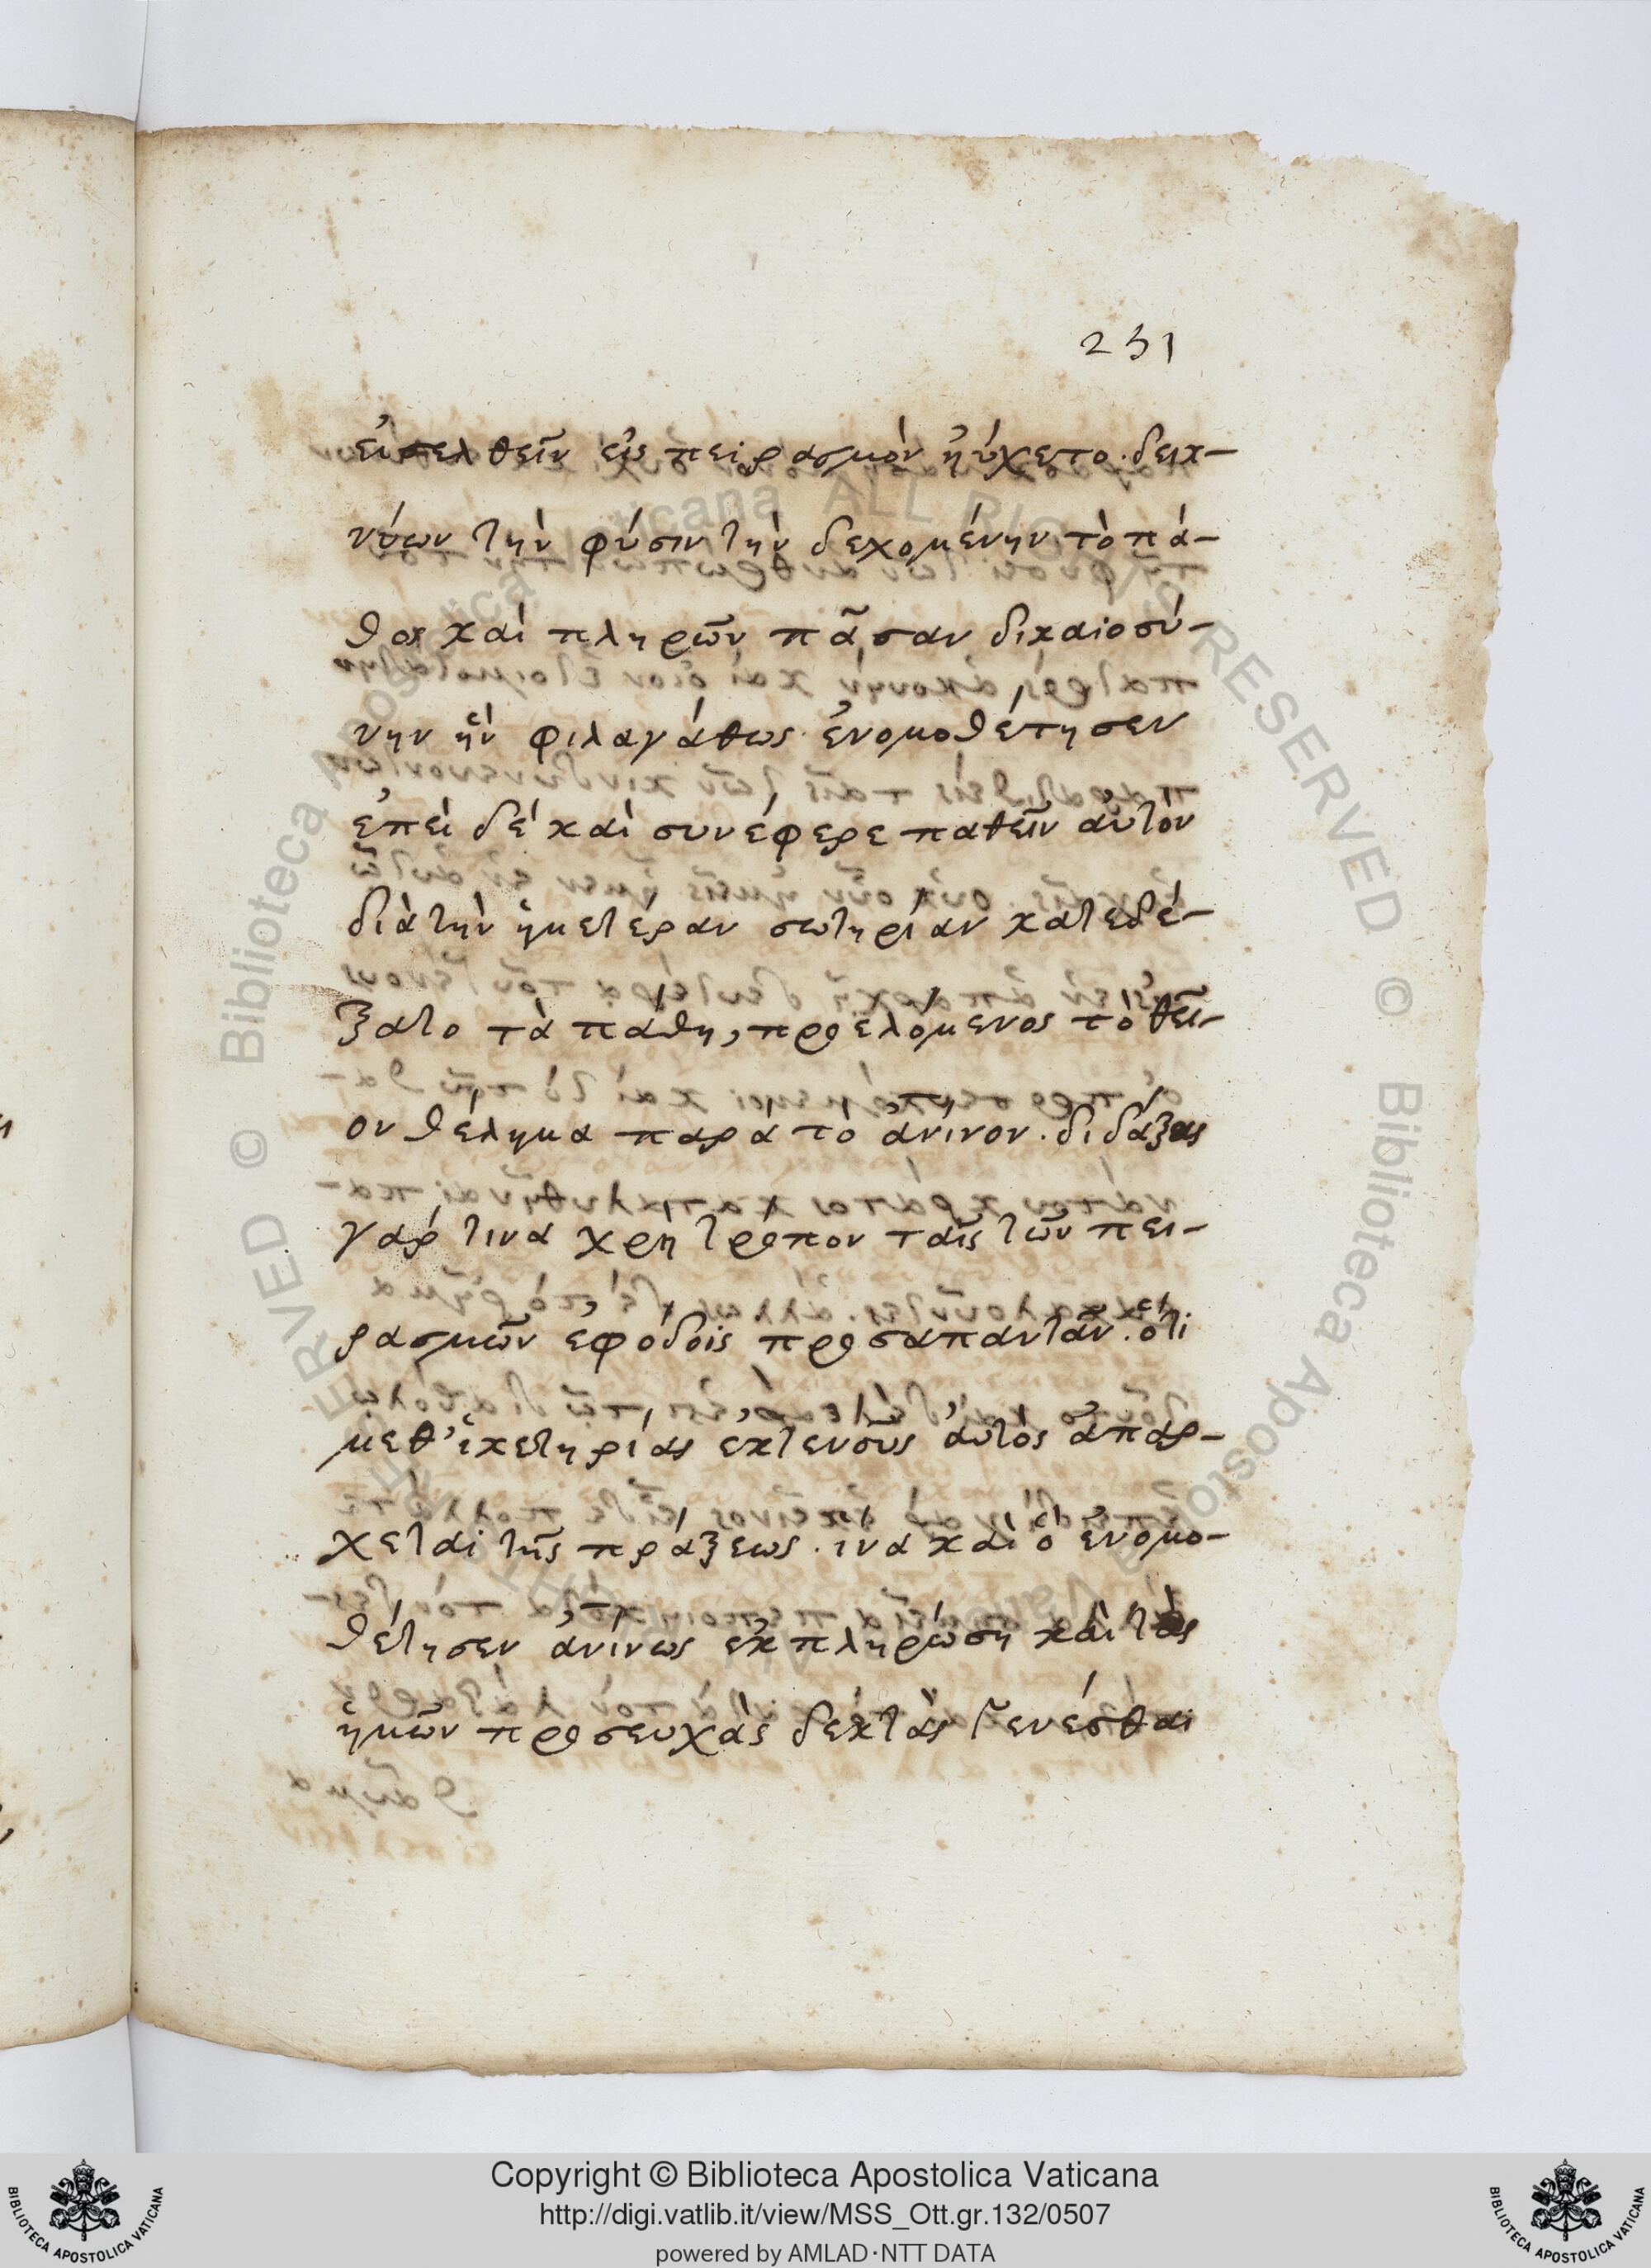 231
εἰσελθεῖν εἰς πειρασμὸν ηὔχετο. δεικ-
νύων τὴν φύσιν τὴν δεχομένην τὸ πά-
θος καὶ πληρῶν πᾶσαν δικαιοσύ-
νην ἣν φιλαγάθως ἐνομοθέτησεν
ἐπεὶ δὲ καὶ συνέφερε παθεῖν αὐτὸν
διὰ τὴν ἡμετέραν σωτηρίαν κατεδέ-
ξατο τὰ πάθη, προελόμενος τὸ θεῖ-
ον θέλημα παρὰ τὸ ἀνίνον. διδάξας
γὰρ τίνα χρὴ τρόπον ταῖς τῶν πει-
ρασμῶν ἐφόδοις προσαπαντᾶν. ὅτι
μεθ' ἱκετηρίας ἐκτενοῦς αὐτὸς ἀπάρ-
χεται τῆς πράξεως. ἵνα καὶ ὃ ἐνομο-
θέτησεν ἀνίνως ἐκπληρώσῃ καὶ τὰς
ἡμῶν προσευχὰς δεκτὰς γενέσθαι
Copyright © Biblioteca Apostolica Vaticana
http://digi.vatlib.it/view/MSS_Ott.gr.132/0507
powered by AMLAD·NTT DATA
BIBLIOTECA APOSTOLICA VATICANA
BIBLIOTECA APOSTOLICA VATICANA